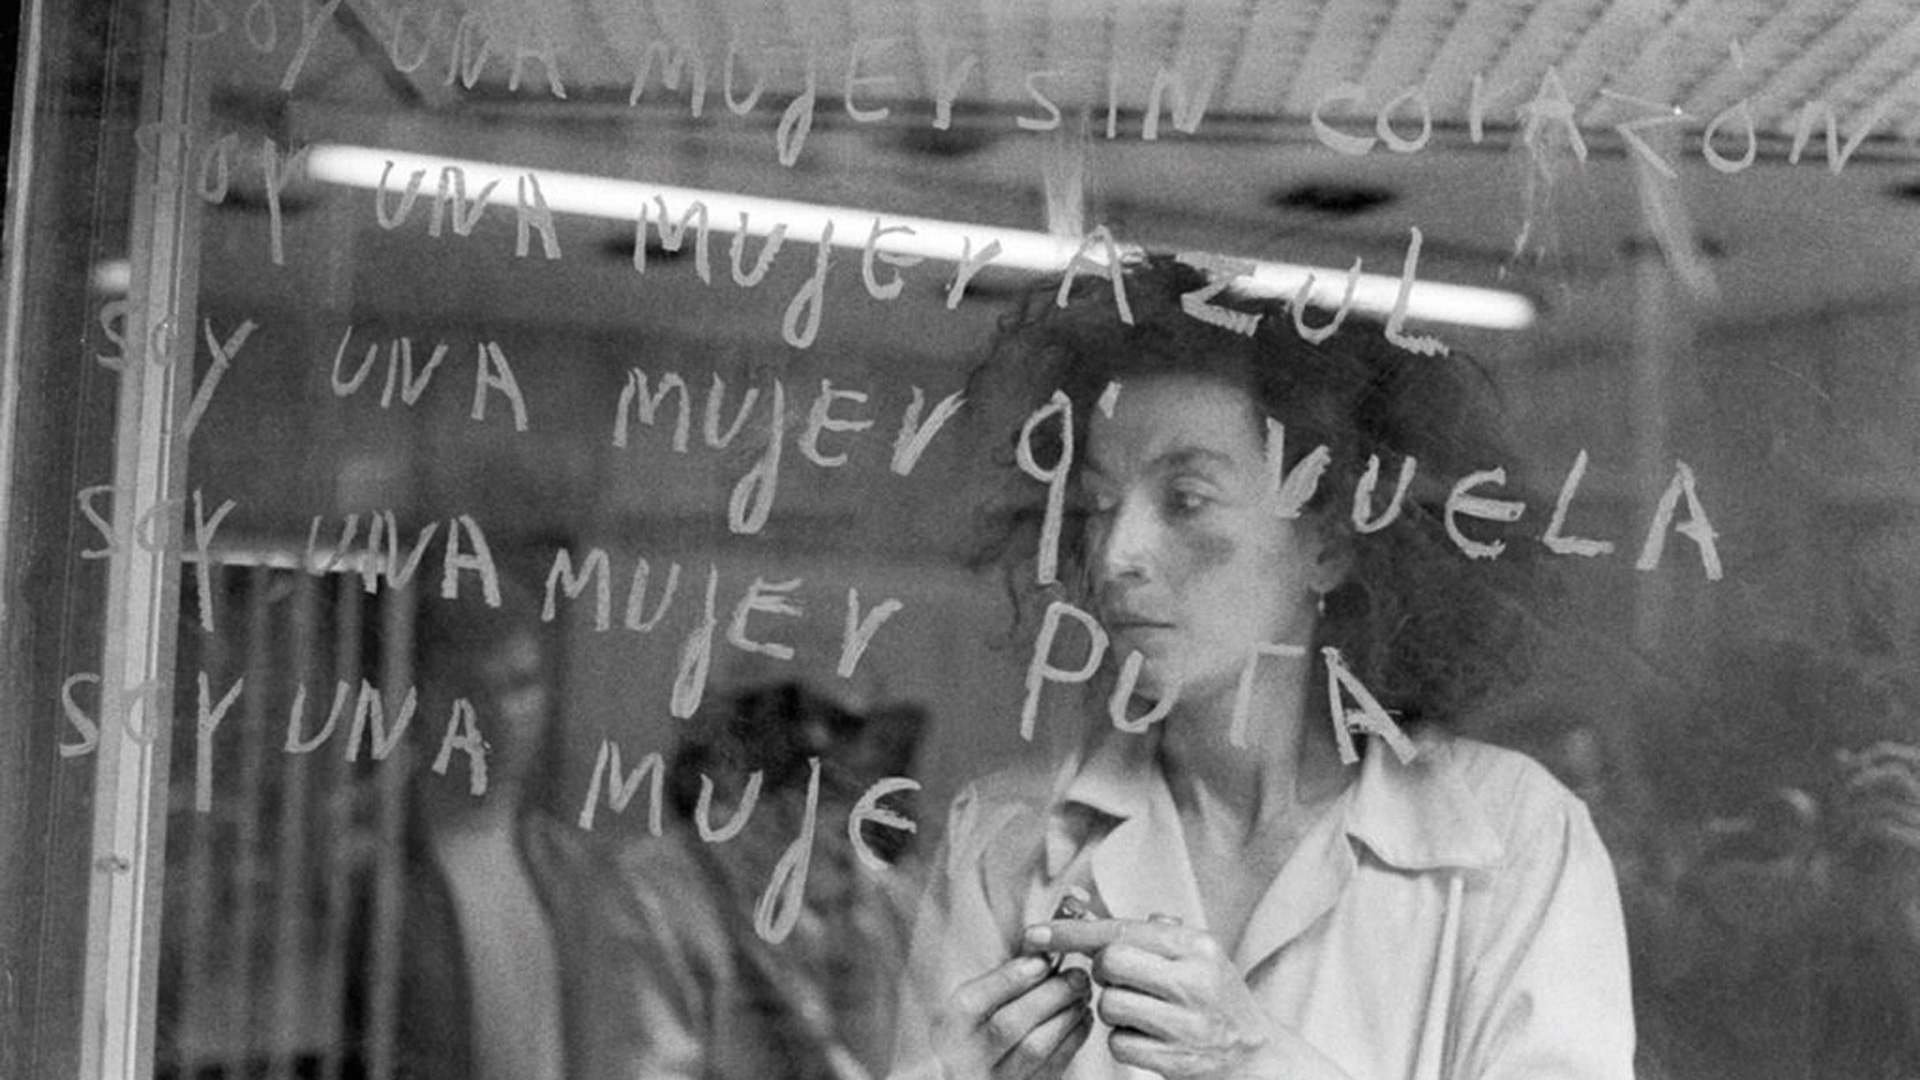 SOY UNA MUJER SIN CORAZÓN
SOY UNA MUJER AZUL
SOY UNA MUJER q' VUELA
SOY UNA MUJER PUTA
SOY UNA MUJE